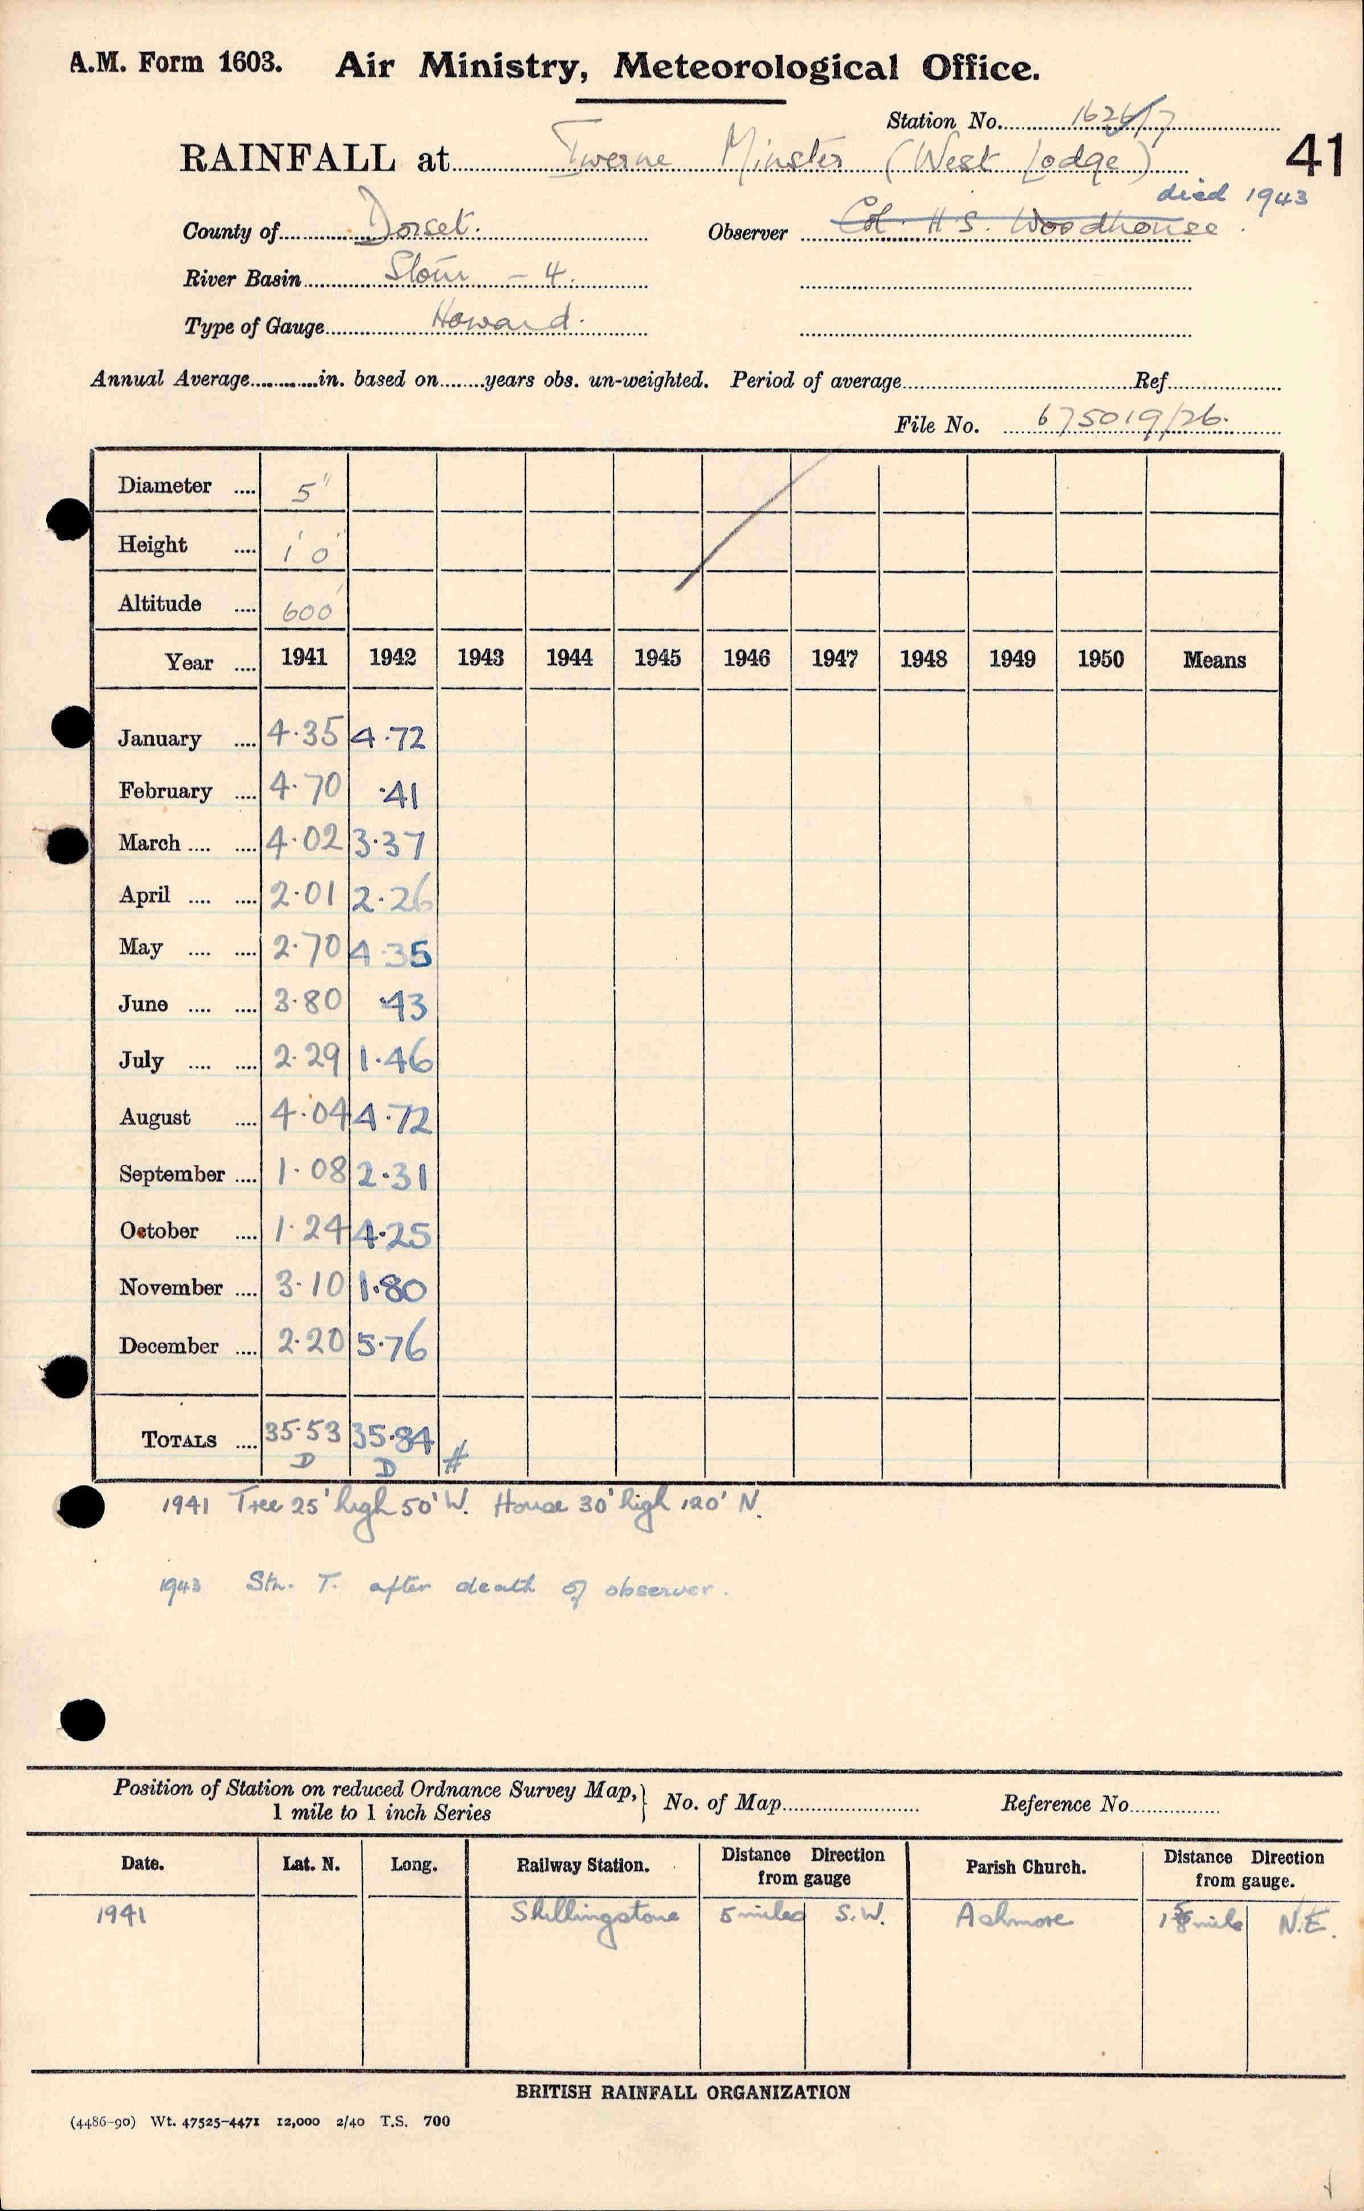 A.M. Form 1603. Air Ministry, Meteorological Office.
Station No. 1626/7
RAINFALL at Iwerne Minster (West Lodge) 41
died 1943
County of Dorset. Observer Col. H S. Woodhouse.
River Basin Stour - 4.
Type of Gauge Howard.
Annual Average............in. based on........years obs. un-weighted. Period of average Ref.
File No. 675019/26.
Diameter .... 5"
Height .... 1' 0"
Altitude .... 600'
Year .... 1941 1942 1943 1944 1945 1946 1947 1948 1949 1950 Means
January .... 4.35 4.72
February .... 4.70 .41
March .... .... 4.02 3.37
April .... .... 2.01 2.26
May .... .... 2.70 4.35
June .... .... 3.80 .43
July .... .... 2.29 1.46
August .... 4.04 4.72
September .... 1.08 2.31
October .... 1.24 4.25
November .... 3.10 1.80
December .... 2.20 5.76
TOTALS .... 35.53 35.84
D D #
1941 Tree 25' high 50' W. House 30' high 120' N.
1943 Stn. T. after death of observer.
Position of Station on reduced Ordnance Survey Map, } No. of Map Reference No.
1 mile to 1 inch Series
Date. Lat. N. Long. Railway Station. Distance Direction from gauge Parish Church. Distance Direction from gauge.
1941 Shillingstone 5 miles S.W. Ashmore 1 5/8 mile N.E.
BRITISH RAINFALL ORGANIZATION
(4486-90) Wt. 47525-4471 12,000 2/40 T.S. 700